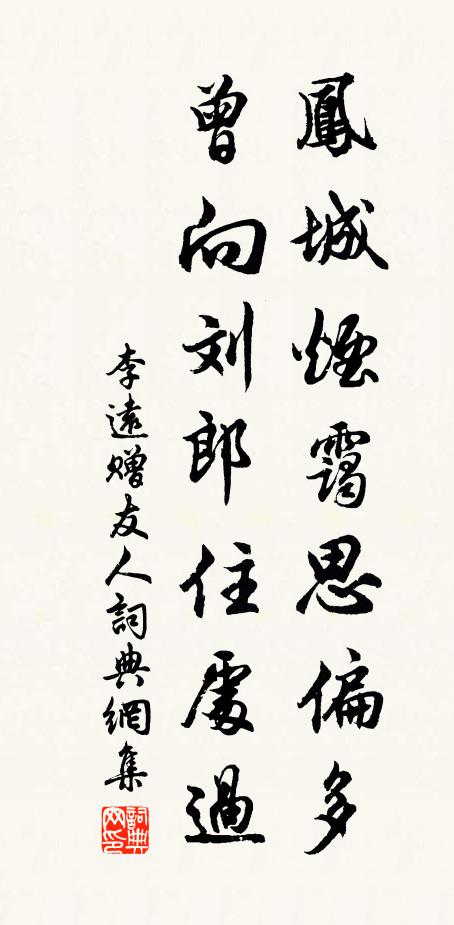 鳳城煙靄思偏多
曾向刘郎住處過
李遠贈友人詞典網集
詞典网印